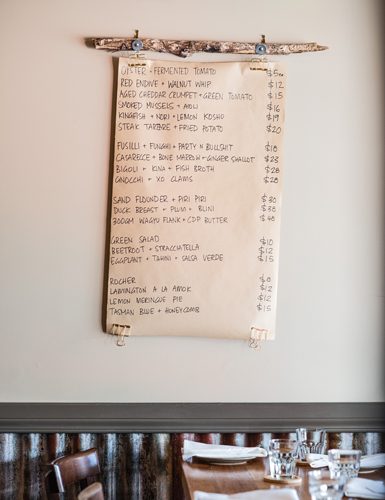 OYSTER + FERMENTED TOMATO $5ea
RED ENDIVE + WALNUT WHIP $12
AGED CHEDDAR CRUMPET + GREEN TOMATO $15
SMOKED MUSSELS + AIOLI $16
KINGFISH + NORI + LEMON KOSHO $19
STEAK TARTARE + FRIED POTATO $20
FUSILLI + FUNGHI + PARTY N BULLSHIT $18
CASARECCE + BONE MARROW + GINGER SHALLOT $23
BIGOLI + KINA + FISH BROTH $28
GNOCCHI + XO CLAMS $28
SAND FLOUNDER + PIRI PIRI $30
DUCK BREAST + PLUM + BLINI $38
300GM WAGYU FLANK + CDP BUTTER $48
GREEN SALAD $10
BEETROOT + STRACCIATELLA $12
EGGPLANT + TAHINI + SALSA VERDE $15
ROCHER
LAMINGTON A LA AMOK $12
LEMON MERINGUE PIE $12
TASMAN BLUE + HONEYCOMB $15